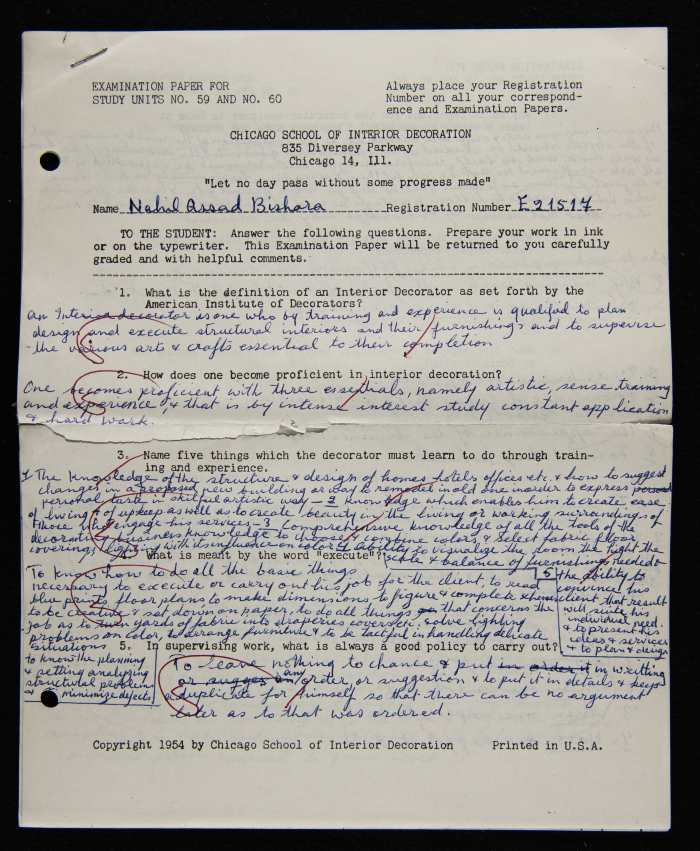 EXAMINATION PAPER FOR
STUDY UNITS NO. 59 AND NO. 60
Always place your Registration
Number on all your correspond-
ence and Examination Papers.
CHICAGO SCHOOL OF INTERIOR DECORATION
835 Diversey Parkway
Chicago 14, Ill.
"Let no day pass without some progress made"
Name Nahil Assad Bishara Registration Number E21517
TO THE STUDENT: Answer the following questions. Prepare your work in ink
or on the typewriter. This Examination Paper will be returned to you carefully
graded and with helpful comments.
1. What is the definition of an Interior Decorator as set forth by the
American Institute of Decorators?
An Interior decorator is one who by training and experience is qualified to plan
design and execute structural interiors and their furnishings and to supervise
the various arts & crafts essential to their completion
2. How does one become proficient in interior decoration?
One becomes proficient with three essentials, namely artistic, sense training
and experience, & that is by intense interest study constant application
& hard work.
3. Name five things which the decorator must learn to do through train-
ing and experience.
1 The knowledge of the structure & design of homes hotels offices etc. & how to suggest
changes in a proposed new building or way to remodel in old one in order to express
personal taste in skilful artistic way - 2 knowledge which enables him to create ease
of living & of upkeep as well as to create beauty in the living or working surroundings of
those who engage his services - 3 Comprehensive knowledge of all the tools of the
decorative business knowledge to choose & combine colors, & select fabric floor
coverings, lighting with its influence on color 4 ability to visualize the room the right the
scale & balance of furnishings needed
4. What is meant by the word "execute"?
5 the ability to
convince his
client that result
will suite his
individual need.
& to present his
ideas & services
& to plan & design
To know how to do all the basic things
necessary to execute or carry out his job for the client, to read
blue prints, floor plans to make dimensions to figure & complete
to be creative & set down on paper, to do all things that concerns the
job as to turn yards of fabric into draperies covers etc, solve lighting
problems on color, to arrange furniture & to be tactful in handling delicate
situations
to know the planning
& setting analyzing
structural problems
& to minimize defects
5. In supervising work, what is always a good policy to carry out?
To leave nothing to chance & put in order it in writting
or any order, or suggestion & to put it in details & keep
a duplicate for himself so that there can be no argument
later as to that was ordered.
Copyright 1954 by Chicago School of Interior Decoration Printed in U.S.A.